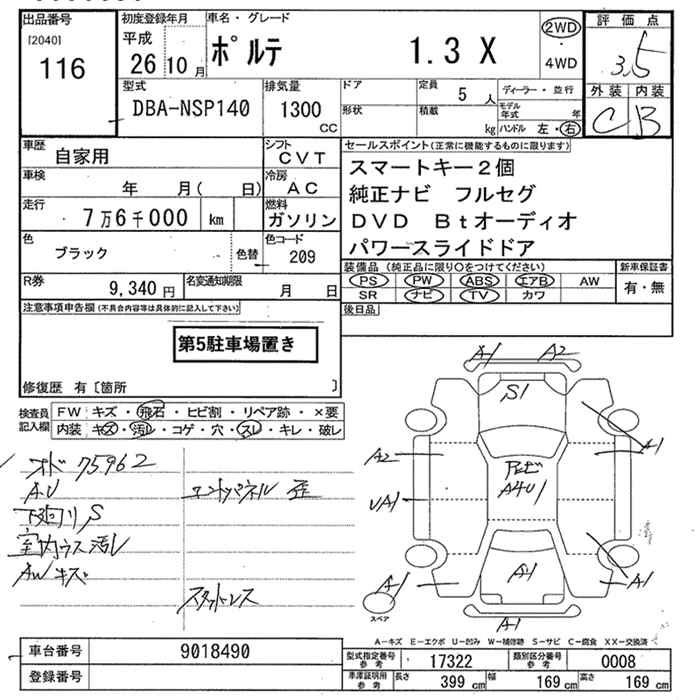 出品番号
[2040]
116
初度登録年月
平成
26 10 月
車名・グレード
ポルテ 1.3 X
2WD
・
4WD
評価点
3.5
外装 内装
C B
型式
DBA-NSP140
排気量
1300
CC
ドア
定員
5 人
形状
積載
kg
ディーラー・並行
モデル年式 年
ハンドル 左・右
車歴
自家用
シフト
CVT
車検
年 月( 日)
冷房
AC
走行
7万6千000 km
燃料
ガソリン
色
ブラック
色替
色コード
209
R券
9,340 円
名変通知期限
月 日
セールスポイント(正常に機能するものに限ります)
スマートキー2個
純正ナビ フルセグ
DVD Btオーディオ
パワースライドドア
装備品 (純正品に限り○をつけてください)
PS PW ABS エアB AW
SR ナビ TV カワ
新車保証書
有・無
後日品
注意事項申告欄(不具合内容等は具体的に記入して下さい)
第5駐車場置き
修復歴 有〔箇所 〕
検査員
記入欄
FW キズ・飛石・ヒビ割・リペア跡・×要
内装 キズ・汚レ・コゲ・穴・スレ・キレ・破レ
オド 75962
AU
エンドパネル 歪
下廻リS
室内ウス汚レ
AWキズ
スタッドレス
A1 A2
S1
A1
A2
アルビ
A4U1
UA1
A1
A1
A1
A1
スペア
A-キズ E-エクボ U-凹み W-補修跡 S-サビ C-腐食 XX-交換済
車台番号 9018490
登録番号
型式指定番号
参考
17322
類別区分番号
参考
0008
車庫証明用
参考
長さ 399 cm
幅 169 cm
高さ 169 cm